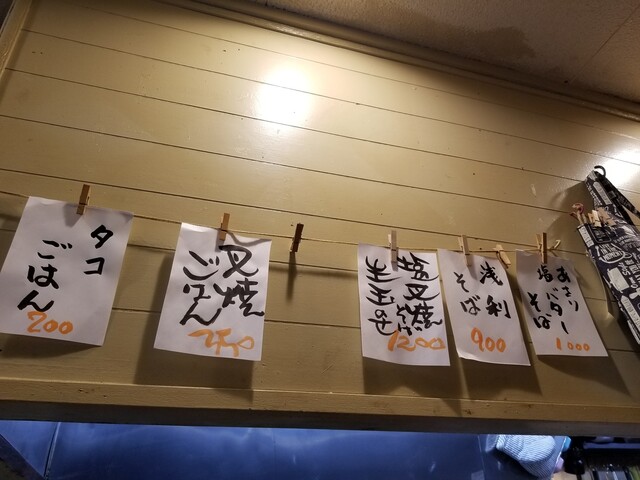 タコ
ごはん
200
叉焼
ごはん
250
塩叉焼そば
生玉のせ
1200
浅利
そば
900
あさり
塩バター
そば
1000